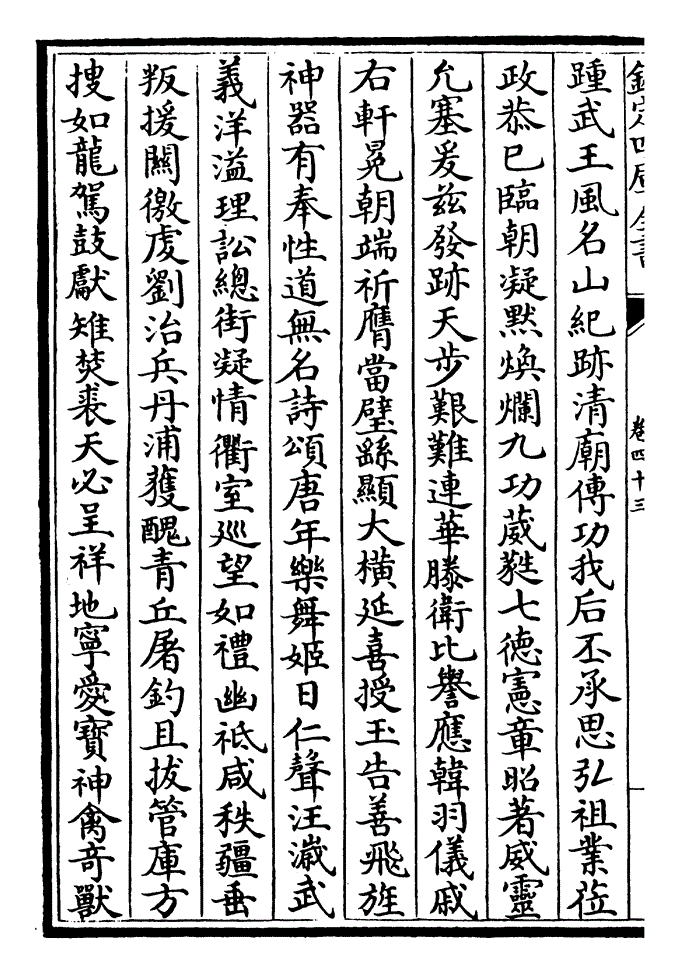 欽定四庫全書
卷四十三
踵武王風名山紀跡清廟傳功我后丕承思弘祖業莅
政恭已臨朝凝黙煥爛九功葳蕤七徳憲章昭著威靈
允塞爰兹發跡天歩艱難連華滕衛比譽應韓羽儀戚
右軒冕朝端祈膺當璧繇顯大橫延喜授玉告善飛旌
神器有奉性道無名詩頌唐年樂舞姬日仁聲汪濊武
義洋溢理訟總街凝情衢室巡望如禮幽祗咸秩疆垂
叛援闗徼虔劉治兵丹浦獲醜青丘屠釣且拔管庫方
搜如龍駕鼓獻雉焚裘天必呈祥地寧愛寳神禽竒獸